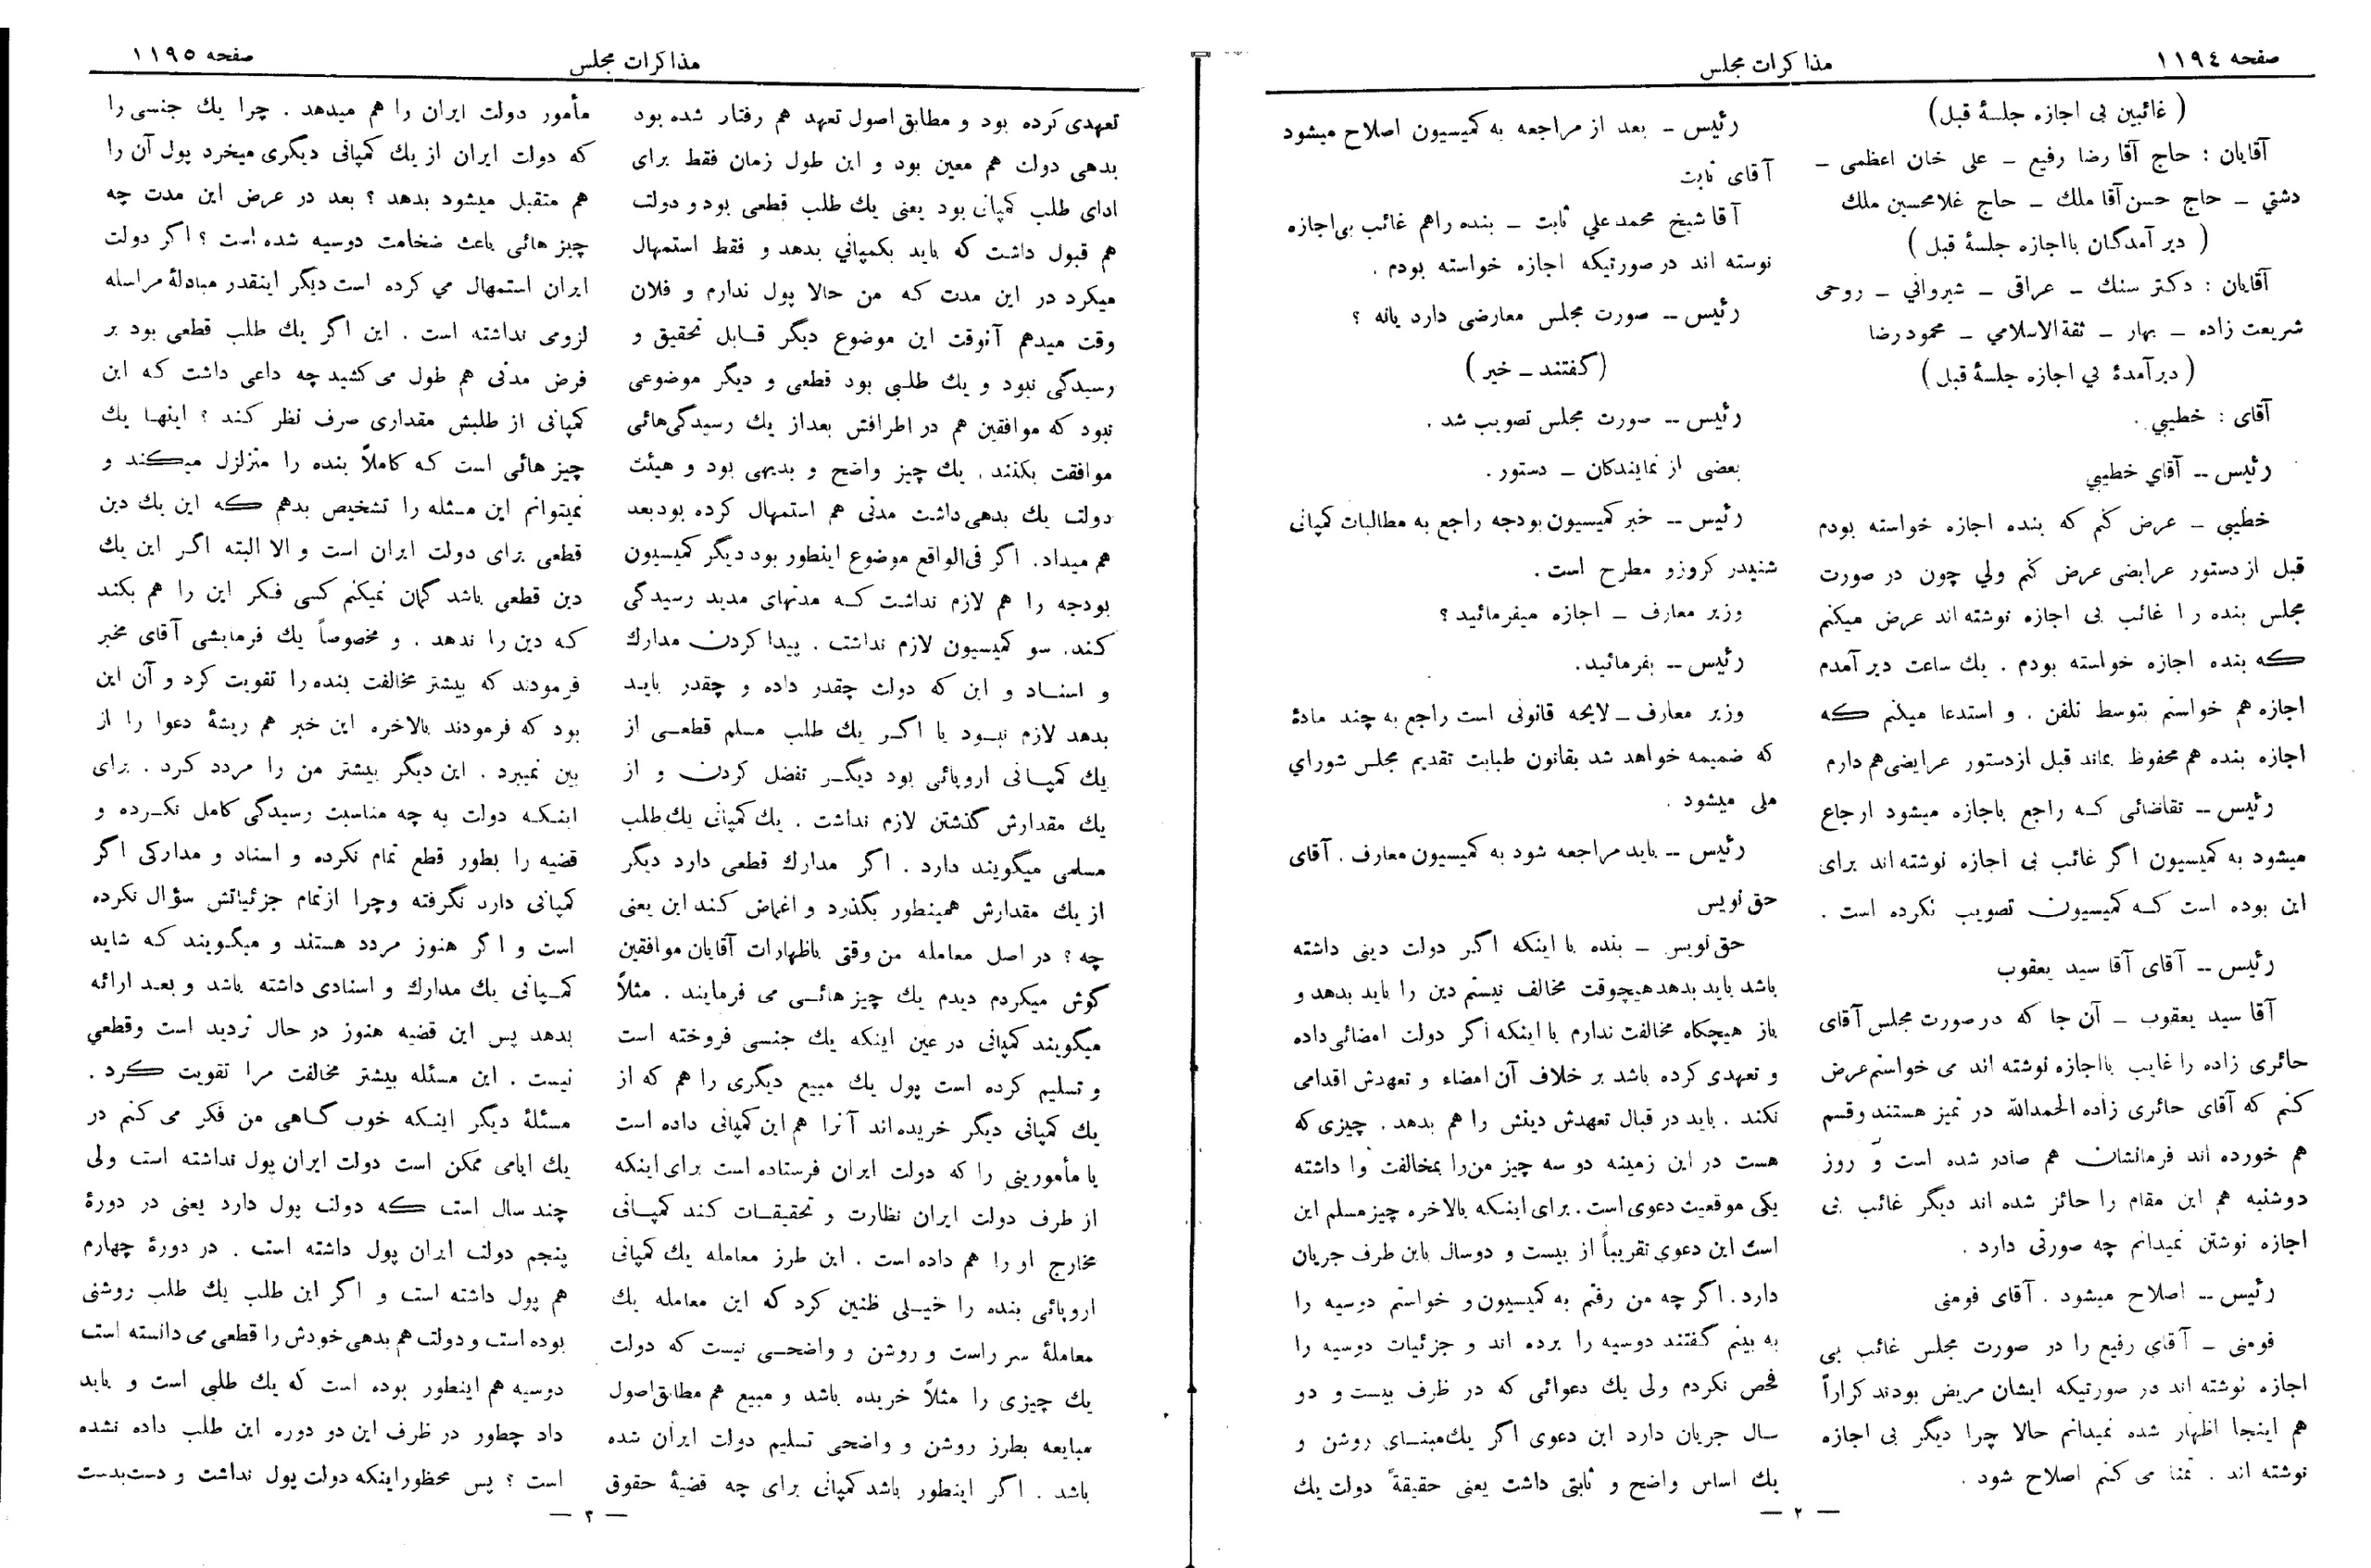 صفحه ۱۱۹٤
مذاکرات مجلس
( غائبین بی اجازه جلسهٔ قبل)
آقایان : حاج آقا رضا رفیع – علی خان اعظمی –
دشتي – حاج حسن آقا ملك – حاج غلامحسین ملك
( دیر آمدگان بااجازه جلسهٔ قبل )
آقایان : دکتر سنك – عراقی – شیرواني – روحی
شریعت زاده – بهار – ثقةالاسلامي – محمود رضا
( دیرآمدهٔ بي اجازه جلسهٔ قبل )
آقای : خطیبي .
رئیس – آقاي خطیبي
خطیبی – عرض کنم که بنده اجازه خواسته بودم
قبل از دستور عرایضی عرض کنم ولي چون در صورت
مجلس بنده را غائب بی اجازه نوشته اند عرض میکنم
که بنده اجازه خواسته بودم . یك ساعت دیر آمدم
اجازه هم خواستم بتوسط تلفن . و استدعا میکنم که
اجازه بنده هم محفوظ بماند قبل ازدستور عرایضی هم دارم
رئیس – تقاضائی که راجع باجازه میشود ارجاع
میشود به کمیسیون اگر غائب بی اجازه نوشته اند برای
این بوده است که کمیسیون تصویب نکرده است .
رئیس – آقای آقا سید یعقوب
آقا سید یعقوب – آن جا که درصورت مجلس آقای
حائری زاده را غایب بااجازه نوشته اند می خواستم عرض
کنم که آقای حائری زاده الحمدالله در تمیز هستند وقسم
هم خورده اند فرمانشان هم صادر شده است و روز
دوشنبه هم این مقام را حائز شده اند دیگر غائب بی
اجازه نوشتن نمیدانم چه صورتی دارد .
رئیس – اصلاح میشود . آقای فومنی
فومنی – آقاي رفیع را در صورت مجلس غائب بی
اجازه نوشته اند در صورتیکه ایشان مریض بودند کراراً
هم اینجا اظهار شده نمیدانم حالا چرا دیگر بی اجازه
نوشته اند . تمنا می کنم اصلاح شود .
رئیس – بعد از مراجعه به کمیسیون اصلاح میشود
آقای ثابت
آقا شیخ محمد علي ثابت – بنده راهم غائب بی‌اجازه
نوسته اند در صورتیکه اجازه خواسته بودم .
رئیس – صورت مجلس معارضی دارد یانه ؟
(گفتند – خیر )
رئیس – صورت مجلس تصویب شد .
بعضی از نمایندکان – دستور .
رئیس – خبر کمیسیون بودجه راجع به مطالبات کمپانی
شنیدر کروزو مطرح است .
وزیر معارف – اجازه میفرمائید ؟
رئیس – بفرمائید.
وزیر معارف – لایحه قانونی است راجع به چند مادهٔ
که ضمیمه خواهد شد بقانون طبابت تقدیم مجلس شوراي
ملی میشود .
رئیس – باید مراجعه شود به کمیسیون معارف . آقای
حق نویس
حق نویس – بنده با اینکه اگر دولت دینی داشته
باشد باید بدهد هیچوقت مخالف نیستم دین را باید بدهد و
باز هیچکاه مخالفت ندارم با اینکه اگر دولت امضائی داده
و تعهدی کرده باشد بر خلاف آن امضاء و تعهدش اقدامی
نکند . باید در قبال تعهدش دینش را هم بدهد . چیزی که
هست در این زمینه دو سه چیز من‌را بمخالفت وا داشته
یکی موقعیت دعوی است . برای اینکه بالاخره چیز مسلم این
است این دعوی تقریباً از بیست و دوسال باین طرف جریان
دارد . اگر چه من رفتم به کمیسیون و خواستم دوسیه را
به بینم گفتند دوسیه را برده اند و جزئیات دوسیه را
فحص نکردم ولی یك دعوائی که در ظرف بیست و دو
سال جریان دارد این دعوی اگر یك مبنای روشن و
یك اساس واضح و ثابتی داشت یعنی حقیقةً دولت یك
— ۲ —
صفحه ۱۱۹٥
مذاکرات مجلس
تعهدی کرده بود و مطابق اصول تعهد هم رفتار شده بود
بدهی دولت هم معین بود و این طول زمان فقط برای
ادای طلب کمپانی بود یعنی یك طلب قطعی بود و دولت
هم قبول داشت که باید بکمپاني بدهد و فقط استمهال
میکرد در این مدت که من حالا پول ندارم و فلان
وقت میدهم آنوقت این موضوع دیگر قابل تحقیق و
رسیدگی نبود و یك طلبی بود قطعی و دیگر موضوعی
نبود که موافقین هم در اطرافش بعداز یك رسیدگی‌هائی
موافقت بکنند . یك چیز واضح و بدیهی بود و هیئت
دولت یك بدهی داشت مدتی هم استمهال کرده بود بعد
هم میداد. اگر فی‌الواقع موضوع اینطور بود دیگر کمیسیون
بودجه را هم لازم نداشت که مدتهای مدید رسیدگی
کند. سو کمیسیون لازم نداشت . پیدا کردن مدارك
و اسناد و این که دولت چقدر داده و چقدر باید
بدهد لازم نبود یا اگر یك طلب مسلم قطعی از
یك کمپانی اروپائی بود دیگر تفضل کردن و از
یك مقدارش گذشتن لازم نداشت . یك کمپانی یك طلب
مسلمی میگویند دارد . اگر مدارك قطعی دارد دیگر
از یك مقدارش همینطور بگذرد و اغماض کند این یعنی
چه ؟ در اصل معامله من وقتی باظهارات آقایان موافقین
گوش میکردم دیدم یك چیز هائی می فرمایند . مثلاً
میگویند کمپانی در عین اینکه یك جنسی فروخته است
و تسلیم کرده است پول یك مبیع دیگری را هم که از
یك کمپانی دیگر خریده‌اند آنرا هم این کمپانی داده است
یا مأمورینی را که دولت ایران فرستاده است برای اینکه
از طرف دولت ایران نظارت و تحقیقات کند کمپانی
مخارج او را هم داده است . این طرز معامله یك کمپانی
اروپائی بنده را خیلی ظنین کرد که این معامله یك
معاملهٔ سر راست و روشن و واضحی نیست که دولت
یك چیزی را مثلاً خریده باشد و مبیع هم مطابق اصول
مبایعه بطرز روشن و واضحی تسلیم دولت ایران شده
باشد . اگر اینطور باشد کمپانی برای چه قضیهٔ حقوق
مأمور دولت ایران را هم میدهد . چرا یك جنسی را
که دولت ایران از یك کمپانی دیگری میخرد پول آن را
هم متقبل میشود بدهد ؟ بعد در عرض این مدت چه
چیز هائی باعث ضخامت دوسیه شده است ؟ اگر دولت
ایران استمهال می کرده است دیگر اینقدر مبادلهٔ مراسله
لزومی نداشته است . این اگر یك طلب قطعی بود بر
فرض مدتی هم طول می کشید چه داعی داشت که این
کمپانی از طلبش مقداری صرف نظر کند ؟ اینها یك
چیز هائی است که کاملاً بنده را متزلزل میکند و
نمیتوانم این مسئله را تشخیص بدهم که این یك دین
قطعی برای دولت ایران است و الا البته اگر این یك
دین قطعی باشد گمان نمیکنم کسی فکر این را هم بکند
که دین را ندهد . و مخصوصاً یك فرمایشی آقای مخبر
فرمودند که بیشتر مخالفت بنده را تقویت کرد و آن این
بود که فرمودند بالاخره این خبر هم ریشهٔ دعوا را از
بین نمیبرد . این دیگر بیشتر من را مردد کرد . برای
اینکه دولت به چه مناسبت رسیدگی کامل نکرده و
قضیه را بطور قطع تمام نکرده و اسناد و مدارکی اگر
کمپانی دارد نگرفته وچرا ازتمام جزئیاتش سؤال نکرده
است و اگر هنوز مردد هستند و میگویند که شاید
کمپانی یك مدارك و اسنادی داشته باشد و بعد ارائه
بدهد پس این قضیه هنوز در حال تردید است وقطعي
نیست . این مسئله بیشتر مخالفت مرا تقویت کرد .
مسئلهٔ دیگر اینکه خوب گاهی من فکر می کنم در
یك ایامی ممکن است دولت ایران پول نداشته است ولی
چند سال است که دولت پول دارد یعنی در دورهٔ
پنجم دولت ایران پول داشته است . در دورهٔ چهارم
هم پول داشته است و اگر این طلب یك طلب روشنی
بوده است و دولت هم بدهی خودش را قطعی می دانسته است
دوسیه هم اینطور بوده است که یك طلبی است و باید
داد چطور در ظرف این دو دوره این طلب داده نشده
است ؟ پس محظور اینکه دولت پول نداشت و دست‌بدست
— ۳ —